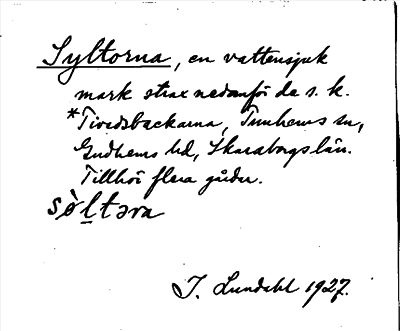 Syltorna, en vattensjuk
mark strax nedanför de s. k.
*Tivedsbackarna, Tunhems sn,
Gudhems hd, Skaraborgs län.
Tillhör flera gårdar.
sòltəra
J. Lundahl 1927.